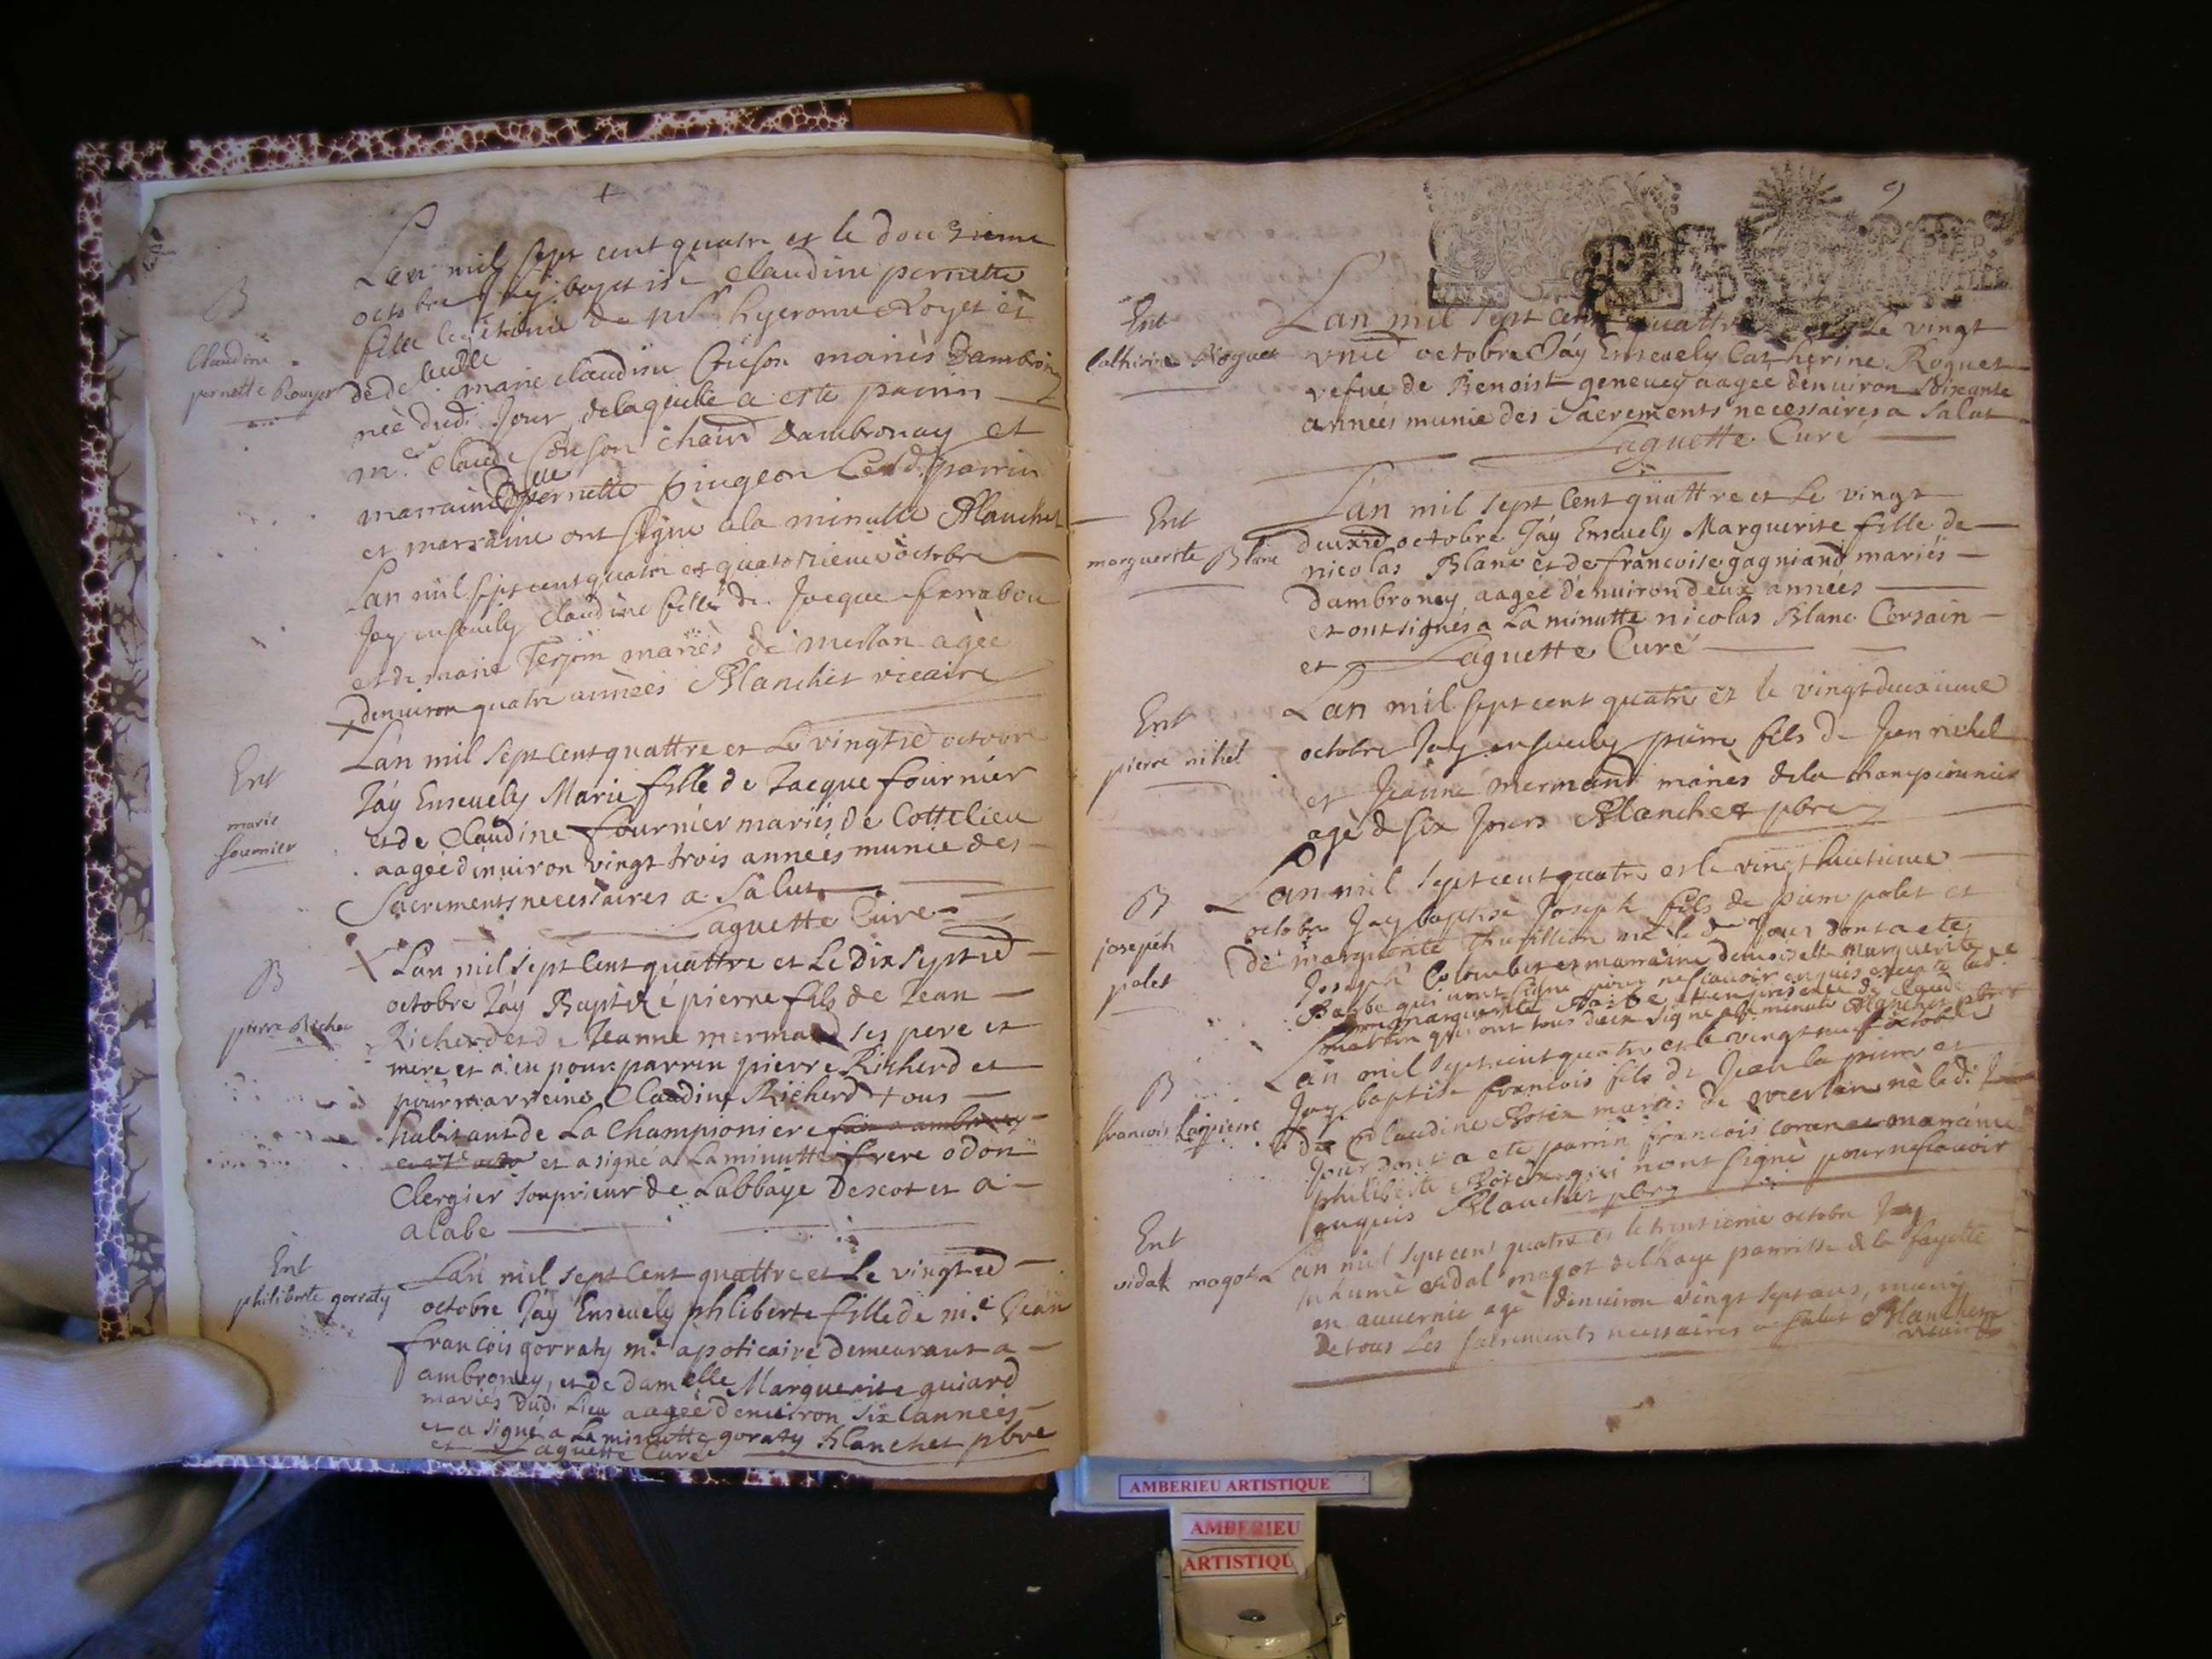 Lan mil sept cent quatre et le douzieme
octobre jay baptisé claudine pernette
fille legitime de Mr hyerome Royet et
de delle marie claudine Cõeson mariés Dambronay
née dud. Jour, de laquelle a este parrin
mre Claude Cõeson Dambronay et
marraine Delle pernette pingeon led. parrin
et marraine ont signé ala minutte Blanchet
B
Claudine
pernette Rouyer
Lan mil sept cent quatre et quatorzieme octobre
Jay ensevely claudine fille de Jacque ferrabou
et de marie mariés de merlan agèe
denviron quatre années Blanchet vicaire
Ent
marie
fournier
Lan mil sept Cent quattre et Le octobre
Jáy Ensevely Marie fille de Jacque fournier
et de Claudine fournier mariés de Cottelieu
aagée denviron vingt trois années munie des
Sacrements necessaires a Salut
Laguette Curé
B
pierre Richer
Lan mil sept Cent quattre et Le dix sept
octobre Jáy Baptizé pierre fils de Jean
Richerd et de Jeanne mermand ses pere et
mere et a eu pour parrin pierre Richerd et
pour marreine Claudine Richerd tous
habitant de La Championiere
et a signé a La minutte frere odon
Clergier souprieur de Labbaye Descot et a
alabe
Ent
philiberte gorraty
Lan mil sept Cent quattre et Le vingt
octobre Jáy Ensevely philiberte fille de me Jean
francois gorraty me apoticaire demeurant a
ambronay, et de damelle Marguerite guiard
mariés dud. Lieu aagée denviron six années
et a signé a La minutte goraty Blanchet pbre
et Laguette Curé
9
Ent
Catherine Roguet
Lan mil sept Cent quattre et Le vingt
unie octobre Jáy Ensevely Catherine Roguet
vefue de Benoist genevey aagée denviron soixante
années munie des Sacrements necessaires a Salut
Laguette Curé
Ent
marguerite Blanc
Lan mil sept Cent quattre et Le vingt
deuxie octobre Jáy Ensevely Marguerite fille de
nicolas Blanc et de francoise gagniand mariés
dambronay aagée denviron deux années
et ont signés a La minutte nicolas Blanc Cersain
et Laguette Curé
Ent
pierre nihel
Lan mil sept cent quatre et le vingt deuxieme
octobre Jay ensevely pierre fils de Jean richel
et Jeanne mermand mariés dela championniere
agé de six Jours Blanchet pbre
B
joseph
polet
Lan mil sept cent quatre et le vingt huictieme
octobre Jay baptisé Joseph fils de pierre polet et
de marguerite Thevillion né le dt Jour dont a ete
Joseph Colombet et marraine demoiselle marguerite
Barbe qui nont signé pour ne scavoir enquis excepte lad.
marguerite Barbe et en presence de claude
martin qui ont tous deux signé ala minutte Blanchet pbre
B
francois lapierre
Lan mil sept cent quatre et le vingt neuf octobre
Jay baptisé francois fils de Jean la pierre et
de Claudine Botex mariés de merlan né led.
Jour dont a ete parrin francois coran et marraine
philiberte Botex qui nont signé pour ne scavoir
enquis Blanchet pbre
Ent
vidal magot
Lan mil sept cent quatre et le trentieme octobre Jay
Inhumé vidal magot parroisse de la fayette
en auvernie agé denviron vingt sept ans, muny
De tous Les sacrements necessaires a salut Blanchet
vicaire
AMBERIEU ARTISTIQUE
AMBERIEU
ARTISTIQU